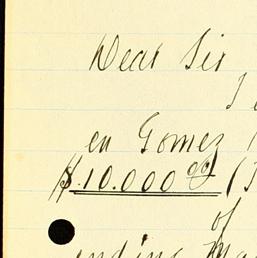 Dear Sir
I
en Gomez
$10.000 00/ (
of
ending Ma